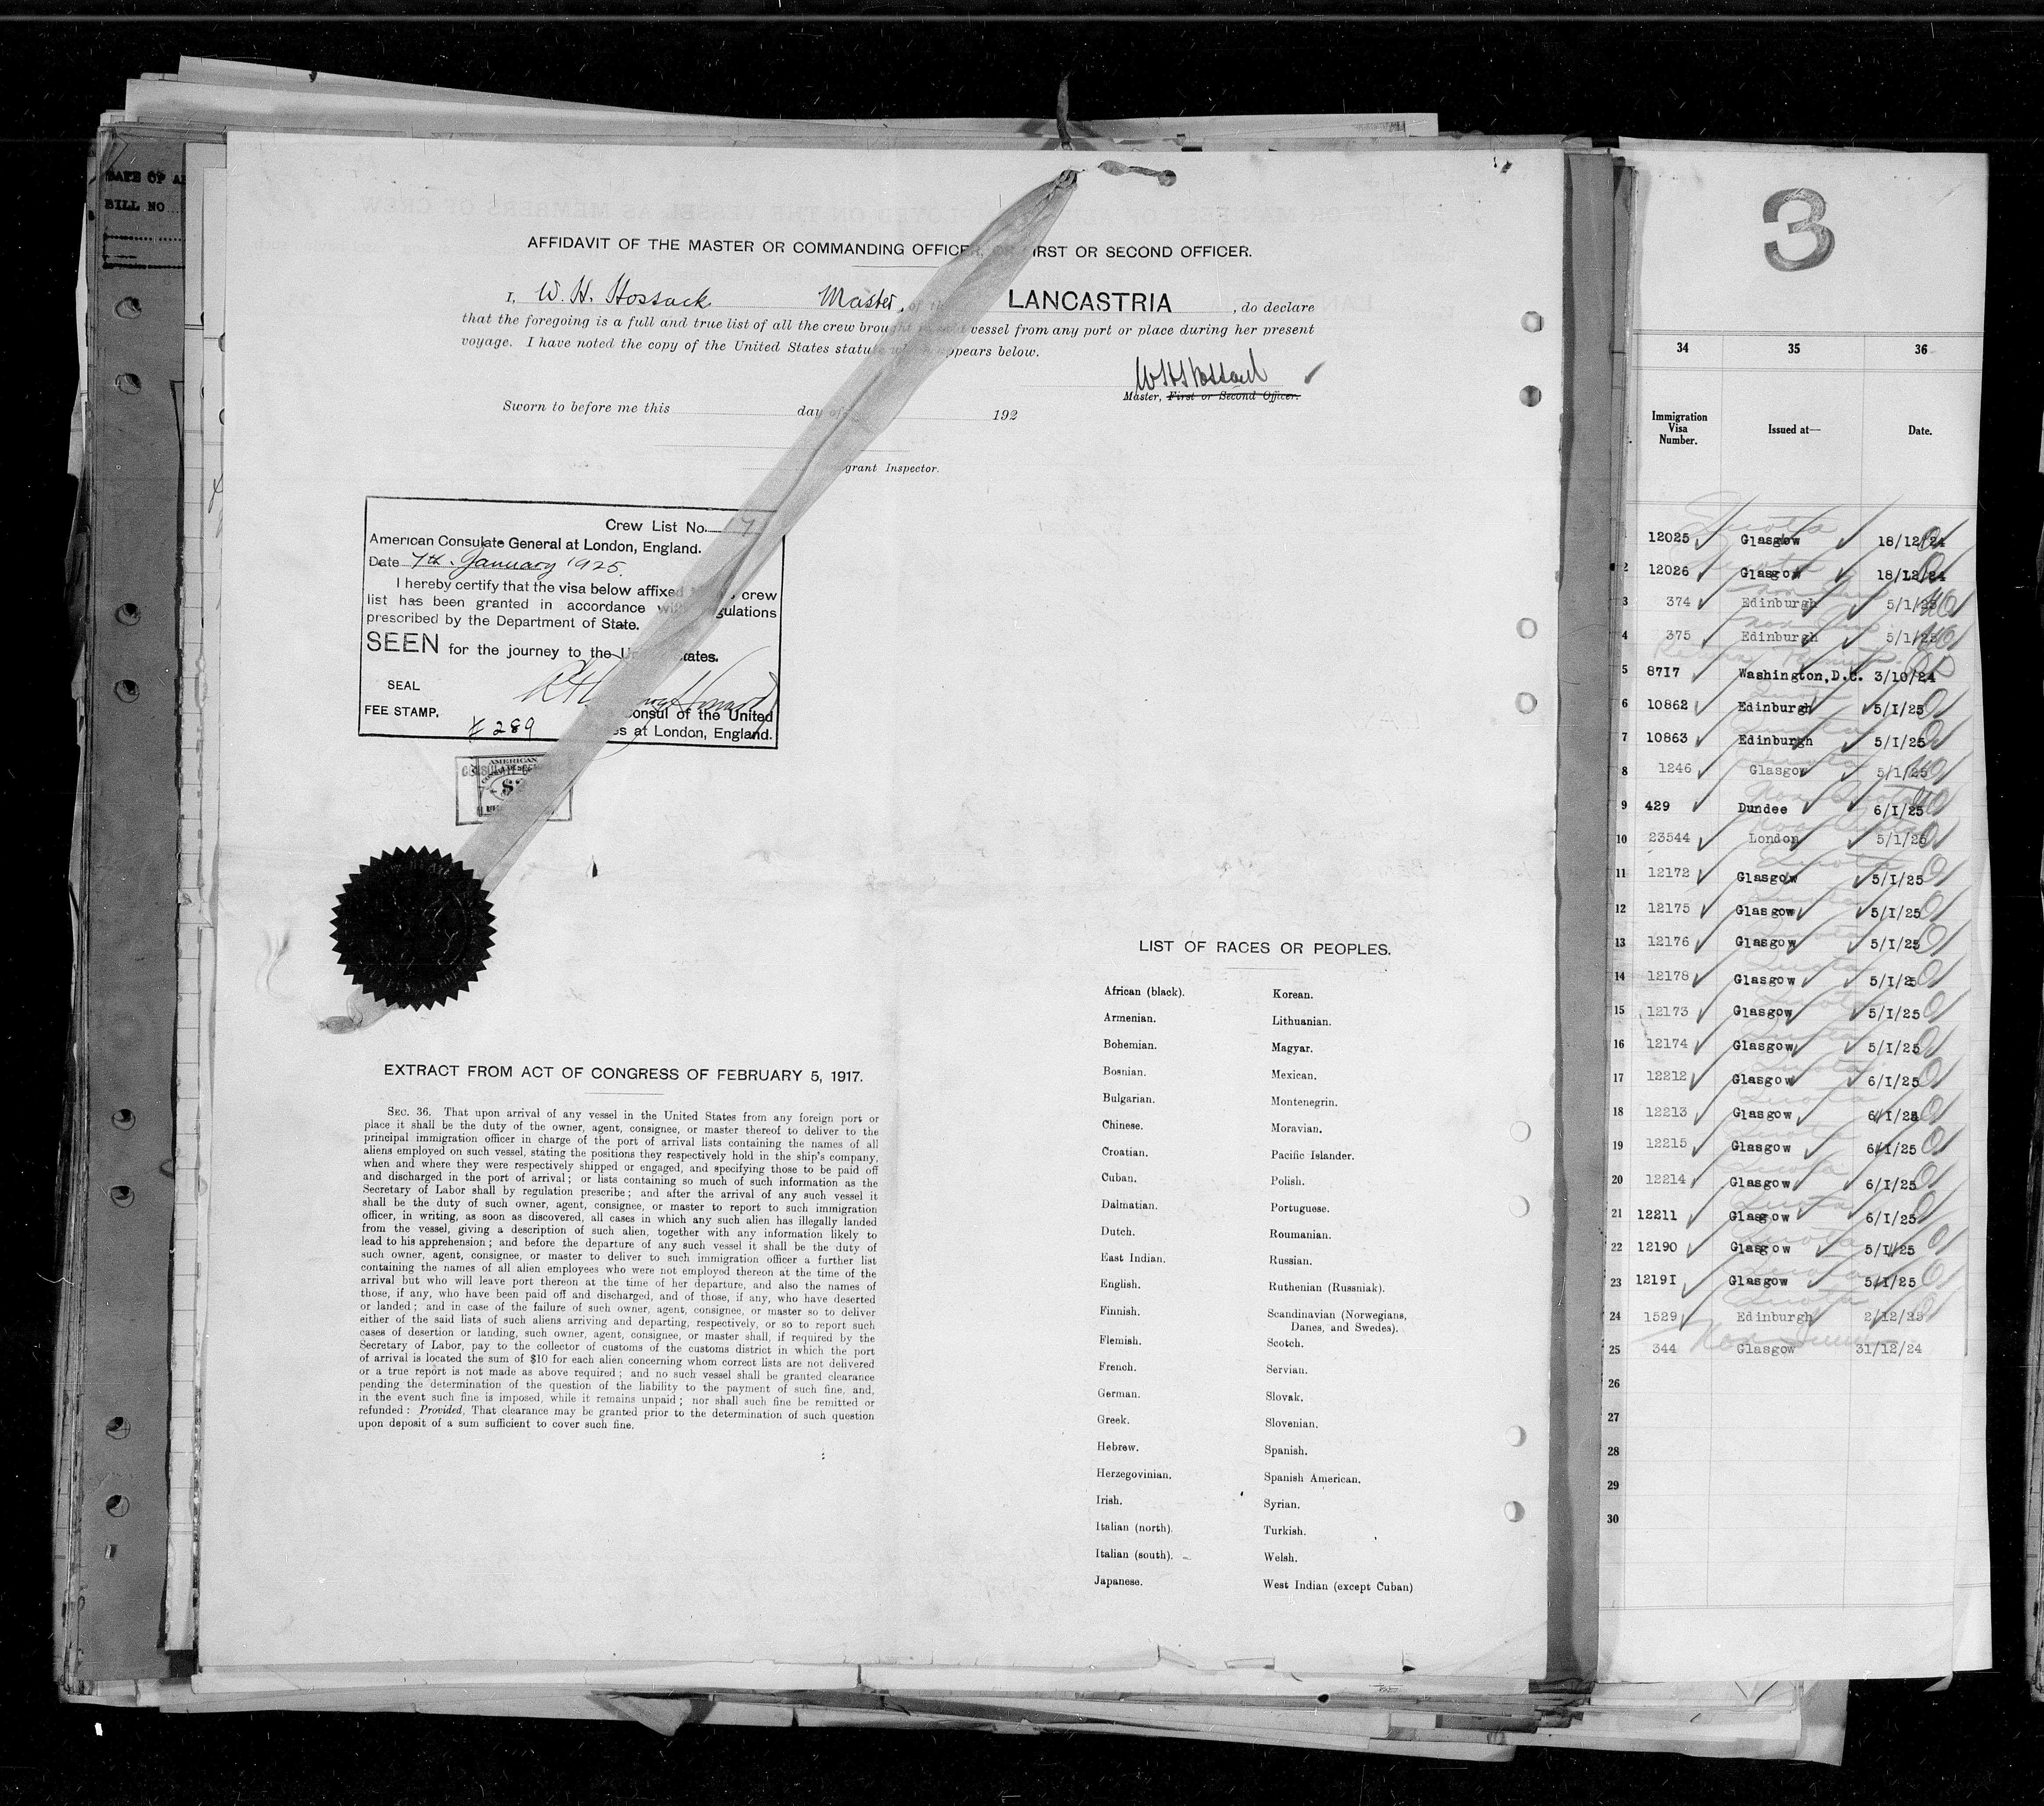 BILL NO
AFFIDAVIT OF THE MASTER OR COMMANDING OFFICER, OR FIRST OR SECOND OFFICER.
I, W. H. Hossack Master, of the LANCASTRIA, do declare
that the foregoing is a full and true list of all the crew brought in said vessel from any port or place during her present
voyage. I have noted the copy of the United States statute which appears below.
W H Hossack
Master, First or Second Officer.
Sworn to before me this day of 192
Immigrant Inspector.
Crew List No. 17
American Consulate General at London, England.
Date 7th. January 1925.
I hereby certify that the visa below affixed to crew
list has been granted in accordance with regulations
prescribed by the Department of State.
SEEN for the journey to the United States.
SEAL
FEE STAMP.
289
Consul of the United
States at London, England.
AMERICAN
EXTRACT FROM ACT OF CONGRESS OF FEBRUARY 5, 1917.
SEC. 36. That upon arrival of any vessel in the United States from any foreign port or
place it shall be the duty of the owner, agent, consignee, or master thereof to deliver to the
principal immigration officer in charge of the port of arrival lists containing the names of all
aliens employed on such vessel, stating the positions they respectively hold in the ship's company,
when and where they were respectively shipped or engaged, and specifying those to be paid off
and discharged in the port of arrival; or lists containing so much of such information as the
Secretary of Labor shall by regulation prescribe; and after the arrival of any such vessel it
shall be the duty of such owner, agent, consignee, or master to report to such immigration
officer, in writing, as soon as discovered, all cases in which any such alien has illegally landed
from the vessel, giving a description of such alien, together with any information likely to
lead to his apprehension; and before the departure of any such vessel it shall be the duty of
such owner, agent, consignee, or master to deliver to such immigration officer a further list
containing the names of all alien employees who were not employed thereon at the time of the
arrival but who will leave port thereon at the time of her departure, and also the names of
those, if any, who have been paid off and discharged, and of those, if any, who have deserted
or landed; and in case of the failure of such owner, agent, consignee, or master so to deliver
either of the said lists of such aliens arriving and departing, respectively, or so to report such
cases of desertion or landing, such owner, agent, consignee, or master shall, if required by the
Secretary of Labor, pay to the collector of customs of the customs district in which the port
of arrival is located the sum of $10 for each alien concerning whom correct lists are not delivered
or a true report is not made as above required; and no such vessel shall be granted clearance
pending the determination of the question of the liability to the payment of such fine, and,
in the event such fine is imposed, while it remains unpaid; nor shall such fine be remitted or
refunded: Provided, That clearance may be granted prior to the determination of such question
upon deposit of a sum sufficient to cover such fine.
LIST OF RACES OR PEOPLES.
African (black). Korean.
Armenian. Lithuanian.
Bohemian. Magyar.
Bosnian. Mexican.
Bulgarian. Montenegrin.
Chinese. Moravian.
Croatian. Pacific Islander.
Cuban. Polish.
Dalmatian. Portuguese.
Dutch. Roumanian.
East Indian. Russian.
English. Ruthenian (Russniak).
Finnish. Scandinavian (Norwegians,
Danes, and Swedes).
Flemish. Scotch.
French. Servian.
German. Slovak.
Greek. Slovenian.
Hebrew. Spanish.
Herzegovinian. Spanish American.
Irish. Syrian.
Italian (north). Turkish.
Italian (south). Welsh.
Japanese. West Indian (except Cuban)
3
34 35 36
Immigration Visa Number. Issued at— Date.
12025 Glasgow 18/12/24
2 12026 Glasgow 18/12/24
3 374 Edinburgh 5/1/25
4 375 Edinburgh 5/1/25
Return Permit
5 8717 Washington,D.C. 3/10/24
6 10862 Edinburgh 5/1/25
7 10863 Edinburgh 5/1/25
8 1246 Glasgow 5/1/25
9 429 Dundee 6/1/25
10 23544 London 5/1/25
11 12172 Glasgow 5/1/25
12 12175 Glasgow 5/1/25
13 12176 Glasgow 5/1/25
14 12178 Glasgow 5/1/25
15 12173 Glasgow 5/1/25
16 12174 Glasgow 5/1/25
17 12212 Glasgow 6/1/25
18 12213 Glasgow 6/1/25
19 12215 Glasgow 6/1/25
20 12214 Glasgow 6/1/25
21 12211 Glasgow 6/1/25
22 12190 Glasgow 5/1/25
23 12191 Glasgow 5/1/25
24 1529 Edinburgh 2/12/25
25 344 Glasgow 31/12/24
26
27
28
29
30